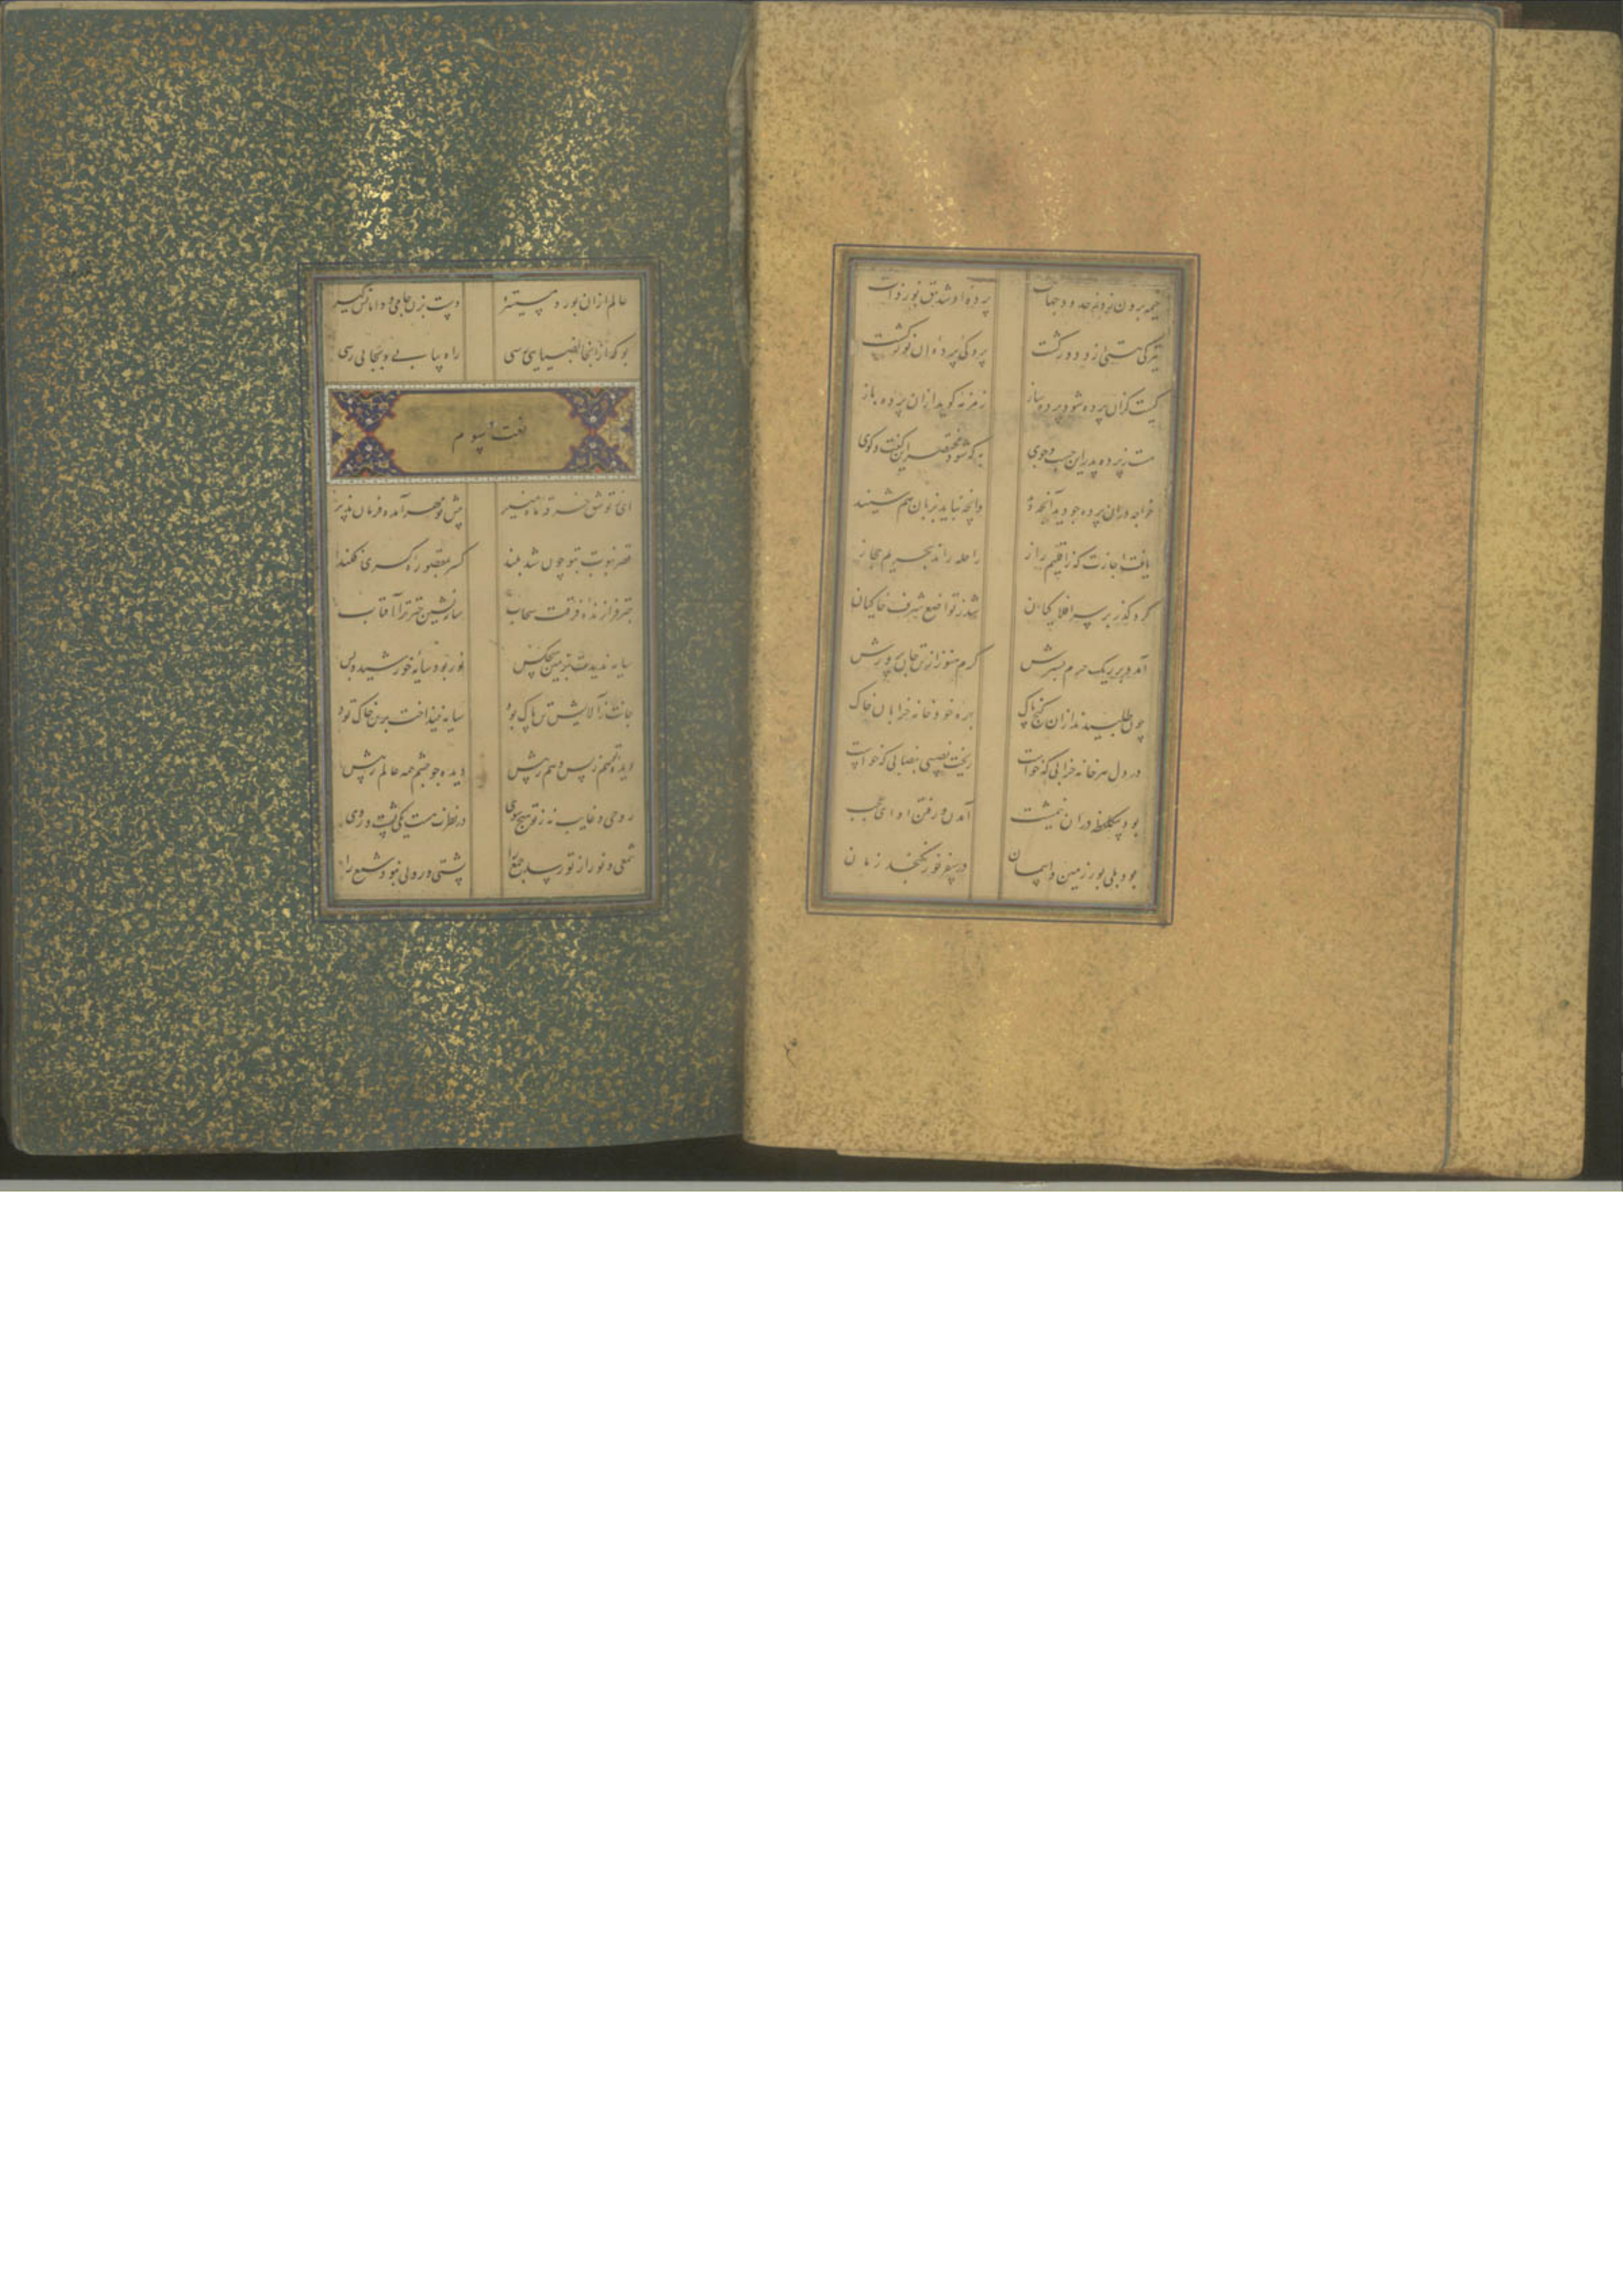 خیمه برون زد ز حدود جهات پرده او شد تتق نور ذات
تیرگی هستی ازو دور گشت پردگی پرده آن نور گشت
کیست کزان پرده شود پرده ساز زمزمه گوید ازان پرده باز
هست ز پرده بدر این جست و جوی به که شود مختصر این گفت و گوی
خواجه دران پرده بدید آنچه دید وانچه نیاید بزبان هم شنید
یافت اجازت که ز اقلیم راز راحله راند بحریم حجاز
کرد گذر بر سر افلاکیان شد ز تواضع شرف خاکیان
آمد و بر ریگ حرم بسترش گرم هنوز از تن جان پرورش
چون طلبیدند ازان گنج پاک بهره خود خانه خرابان خاک
در دل هر خانه خرابی که خواست ریخت نصیبی بنصابی که خواست
بود یک لحظه دران نیم شب آمدن و رفتن او ای عجب
بود بلی نور زمین و آسمان در سفر نور نگنجد زمان
عالم ازان نور دمی مستنیر دست بزن جامی و دامانش گیر
بو که ازانجا بضیایی رسی راه بیابی و بجایی رسی
نعت سوم
ای ز تو شق خرقه ماه منیر پیش تو مهر آمده فرمان پذیر
قصر نبوت بتو چون شد بلند کسر بمقصوره کسری فکند
چتر فرازنده فرقت سحاب سایه نشین چتر ترا آفتاب
سایه ندیدت بزمین هیچکس نور بود سایه خورشید و بس
جانت ز آلایش تن پاک بود سایه نینداخت برین خاک تو
دیده تو هم ز پس و هم ز پیش دیده چو چشم همه عالم ز پیش
روحی و غایب نه ز تو هیچ سوی در نظرت هست یکی پشت و روی
شمعی و نور از تو رسد جمع را پشتی و رویی نبود شمع را